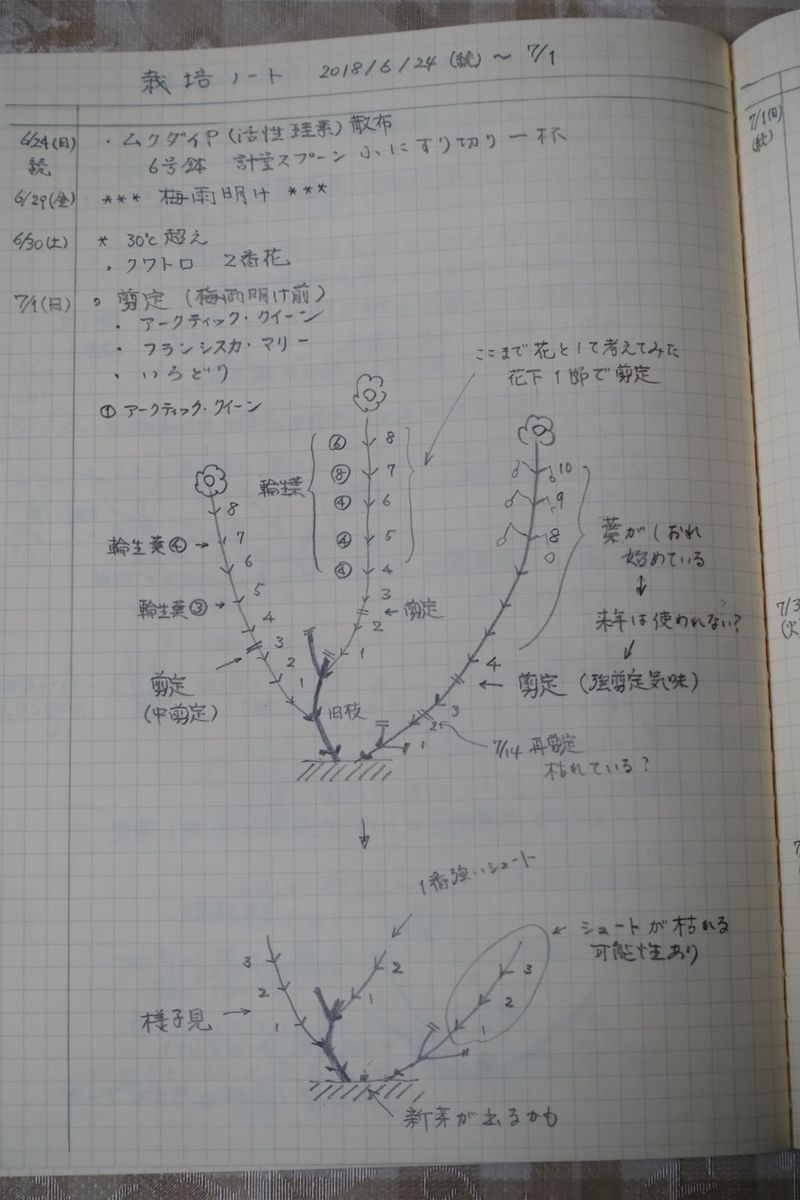 栽培ノート 2018/6/24(続)~7/1
6/24(日) ・ムクダイP(活性珪素)散布
続 6号鉢 計量スプーン小にすり切り一杯
6/29(金) *** 梅雨明け ***
6/30(土) * 30℃超え
・クワトロ 2番花
7/1(日) ○ 剪定(梅雨明け前)
・アークティック・クイーン
・フランシスカ・マリー
・いろどり
① アークティック・クイーン
ここまで花として考えてみた
花下1節で剪定
8
輪生葉④→ 7
6
輪生葉③→ 5
4
3
2
1
剪定
(中剪定)
輪生葉
⑥ 8
⑧ 7
④ 6
④ 5
④ 4
3
←剪定
2
1
旧枝
10
9
8
葉がしおれ
始めている
↓
来年は使われない?
↓
4
← 剪定(強剪定気味)
3
2
1
7/14 再剪定
枯れている?
↓
1番強いシュート
← シュートが枯れる
可能性あり
3
2
1
様子見 →
2
1
3
2
1
新芽が出るかも
7/1(日)
(続)
7/3
(火)